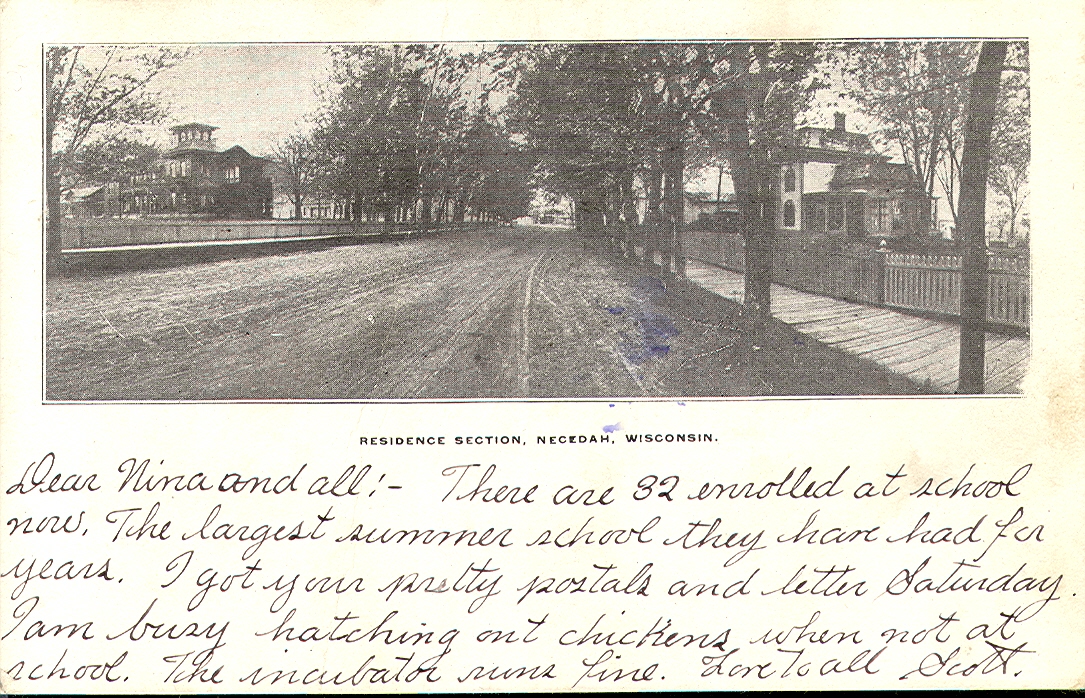 RESIDENCE SECTION, NECEDAH, WISCONSIN.
Dear Nina and all:- There are 32 enrolled at school
now. The largest summer school they have had for
years. I got your pretty postals and letter Saturday.
I am busy hatching out chickens when not at
school. The incubator runs fine. Love to all Scott.